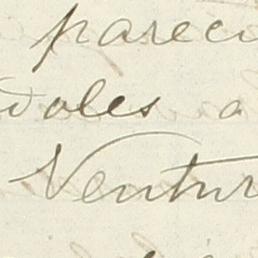 pareci
doles a
Ventur